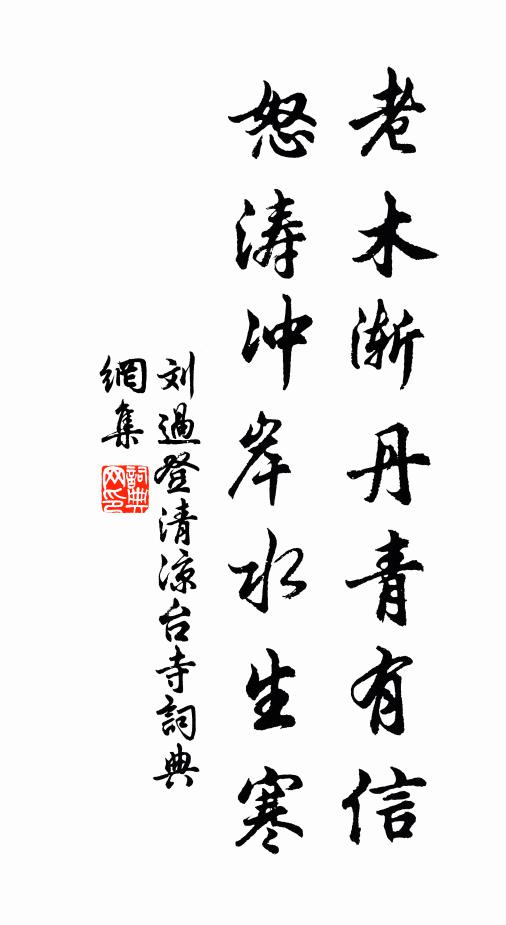 老木渐丹青有信
怒涛冲岸水生寒
刘過登清凉台寺詞典
網集
詞典
网印